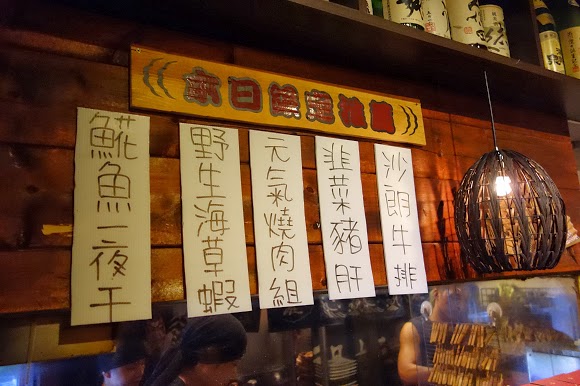 本日推薦
沙朗牛排
韭菜豬肝
元氣燒肉組
野生海草蝦
𩸽魚一夜干